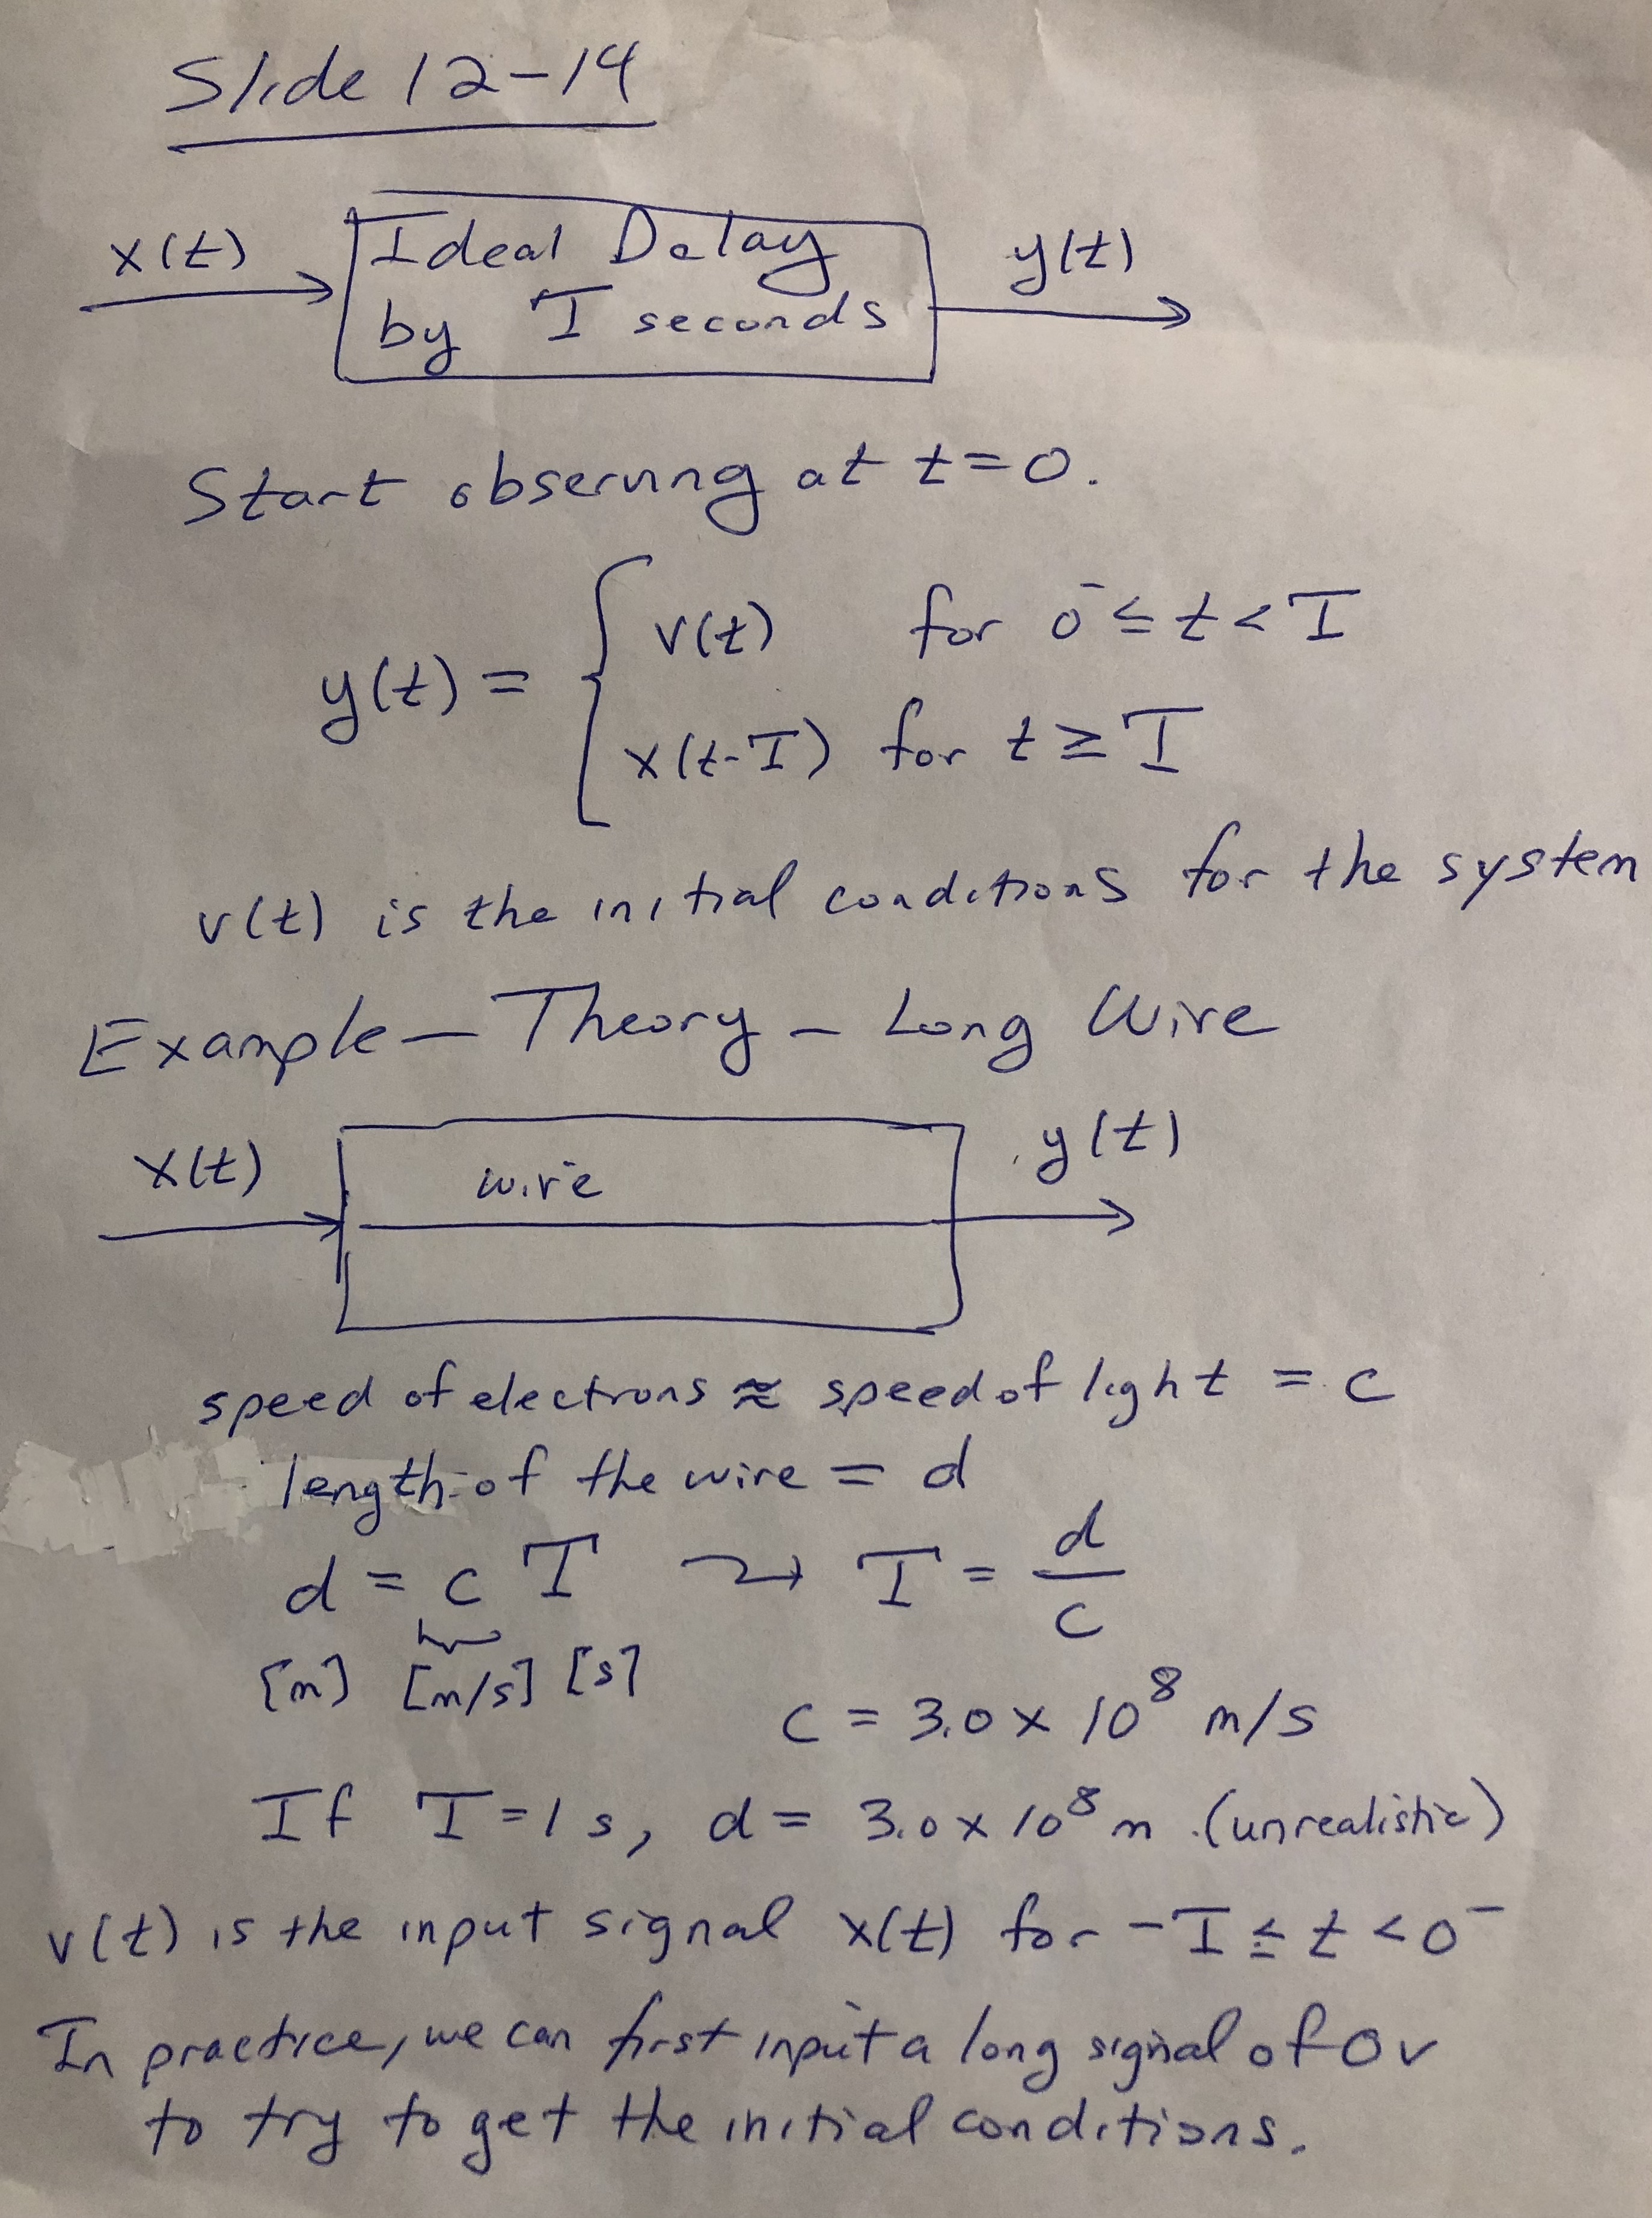 Slide 12-14
x(t)
Ideal Delay
by T seconds
y(t)
Start observing at t=0.
y(t) = { v(t) for 0⁻ ≤ t < T
x(t-T) for t ≥ T
v(t) is the initial conditions for the system
Example - Theory - Long Wire
x(t)
wire
y(t)
speed of electrons ≈ speed of light = c
length of the wire = d
d = c T ⇝ T = d/c
[m] [m/s] [s]
c = 3.0 x 10⁸ m/s
If T = 1 s, d = 3.0 x 10⁸ m (unrealistic)
v(t) is the input signal x(t) for -T ≤ t < 0⁻
In practice, we can first input a long signal of 0 v
to try to get the initial conditions.